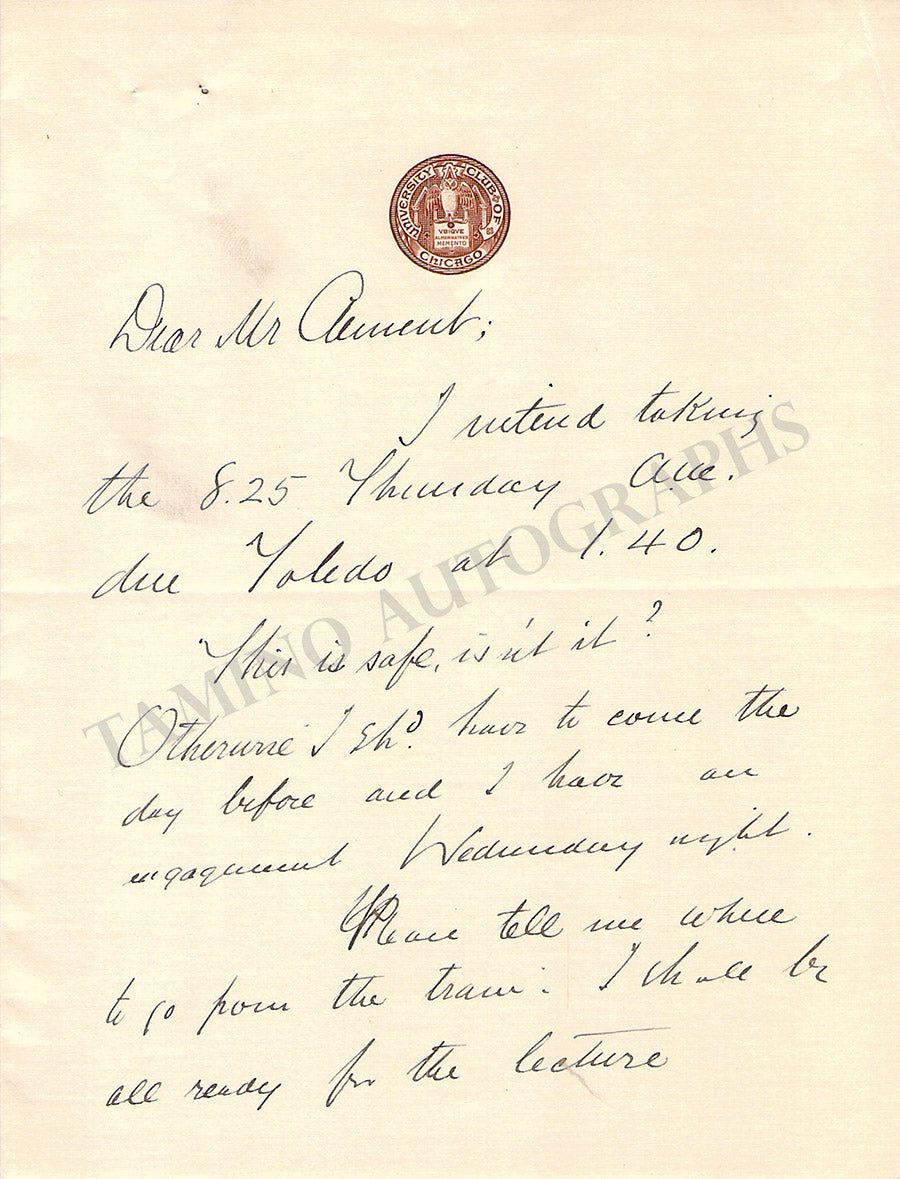 UNIVERSITY CLUB OF CHICAGO
UBIQUE
ALMAE MATRIS
MEMENTO
Dear Mr Clement;
I intend taking
the 8.25 Thursday
due Toledo at 1.40.
This is safe, isn't it?
Otherwise I shd. have to come the
day before and I have an
engagement Wednesday night.
Please tell me where
to go from the train. I shall be
all ready for the lecture
TAMINO AUTOGRAPHS